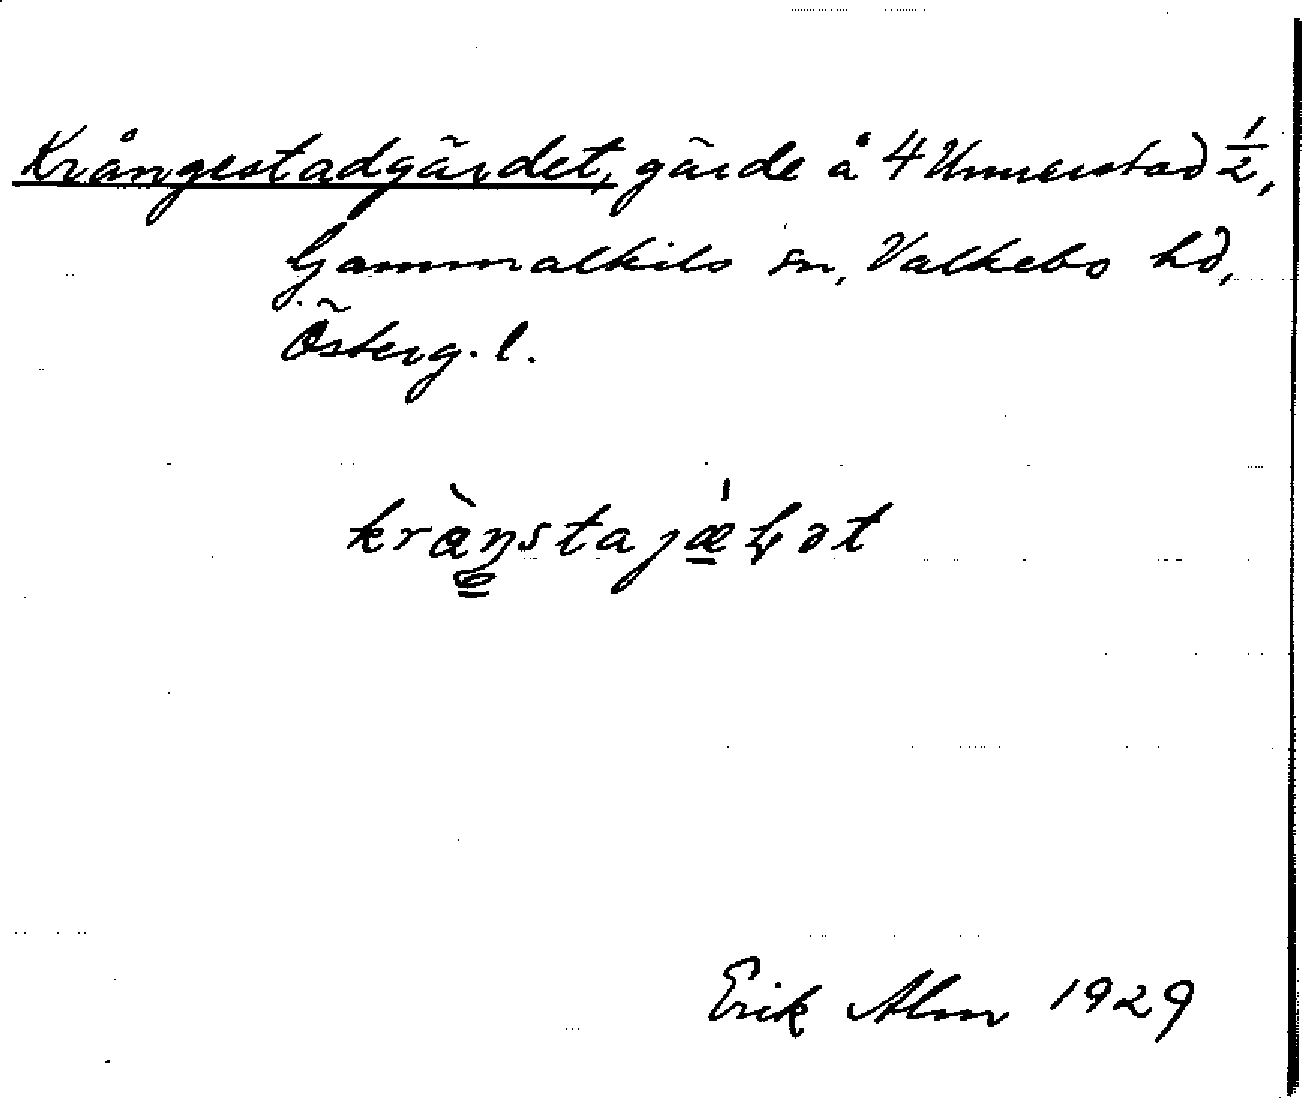 Krångestadgärdet, gärde å 4 Unnerstad ½,
Gammalkils sn, Valkebo hd,
Österg. l.
Erik Alm 1929